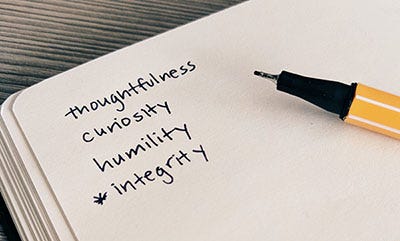 thoughtfulness
curiosity
humility
* integrity